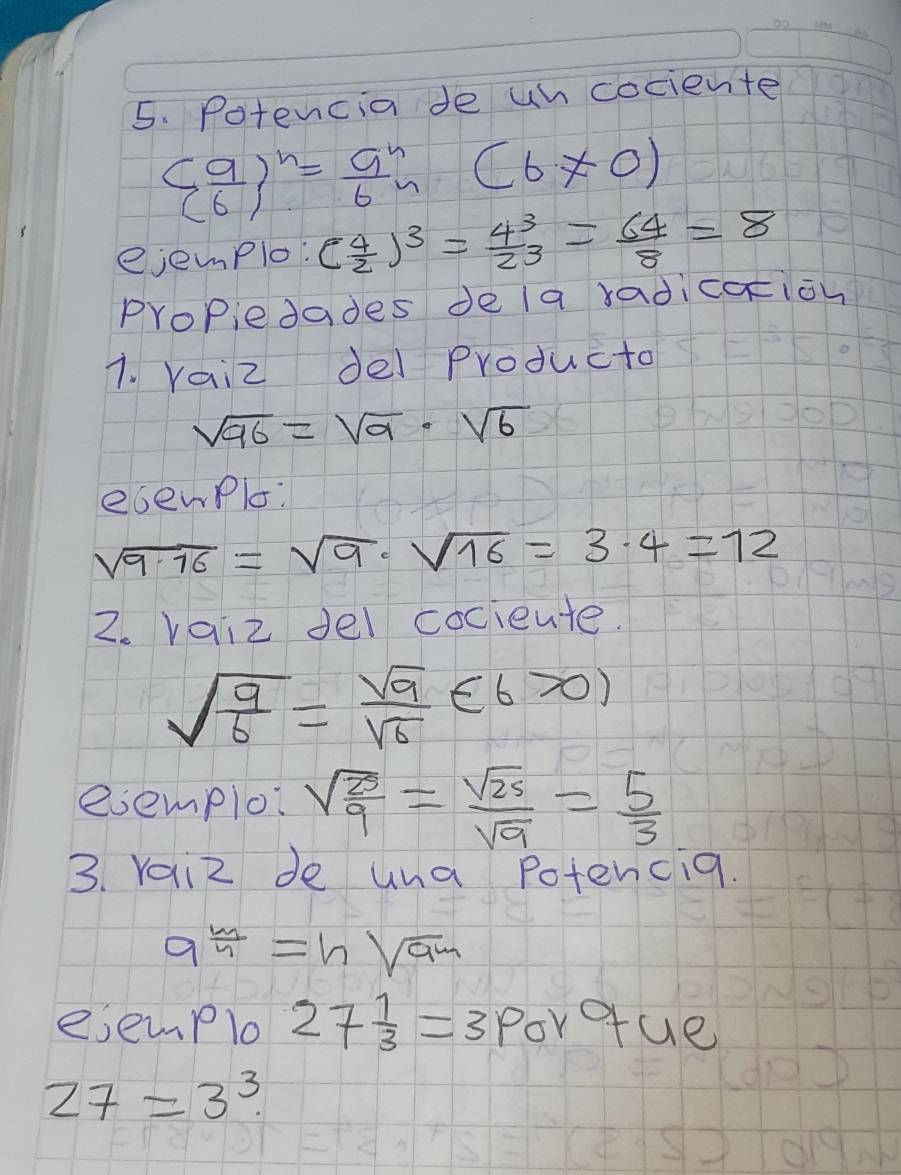 5. Potencia de un cociente
(a/b)ⁿ = aⁿ/bⁿ (b ≠ 0)
ejemplo: (4/2)³ = 4³/2³ = 64/8 = 8
Propiedades de la radicación
1. raiz del Producto
√ab = √a · √b
ejemplo:
√9·16 = √9 · √16 = 3·4 = 12
2. raiz del cociente.
√a/b = √a/√b (b>0)
ejemplo: √25/9 = √25/√9 = 5/3
3. raiz de una Potencia.
a m/n = n √am
ejemplo 27 1/3 = 3 Porque
27 = 3³.